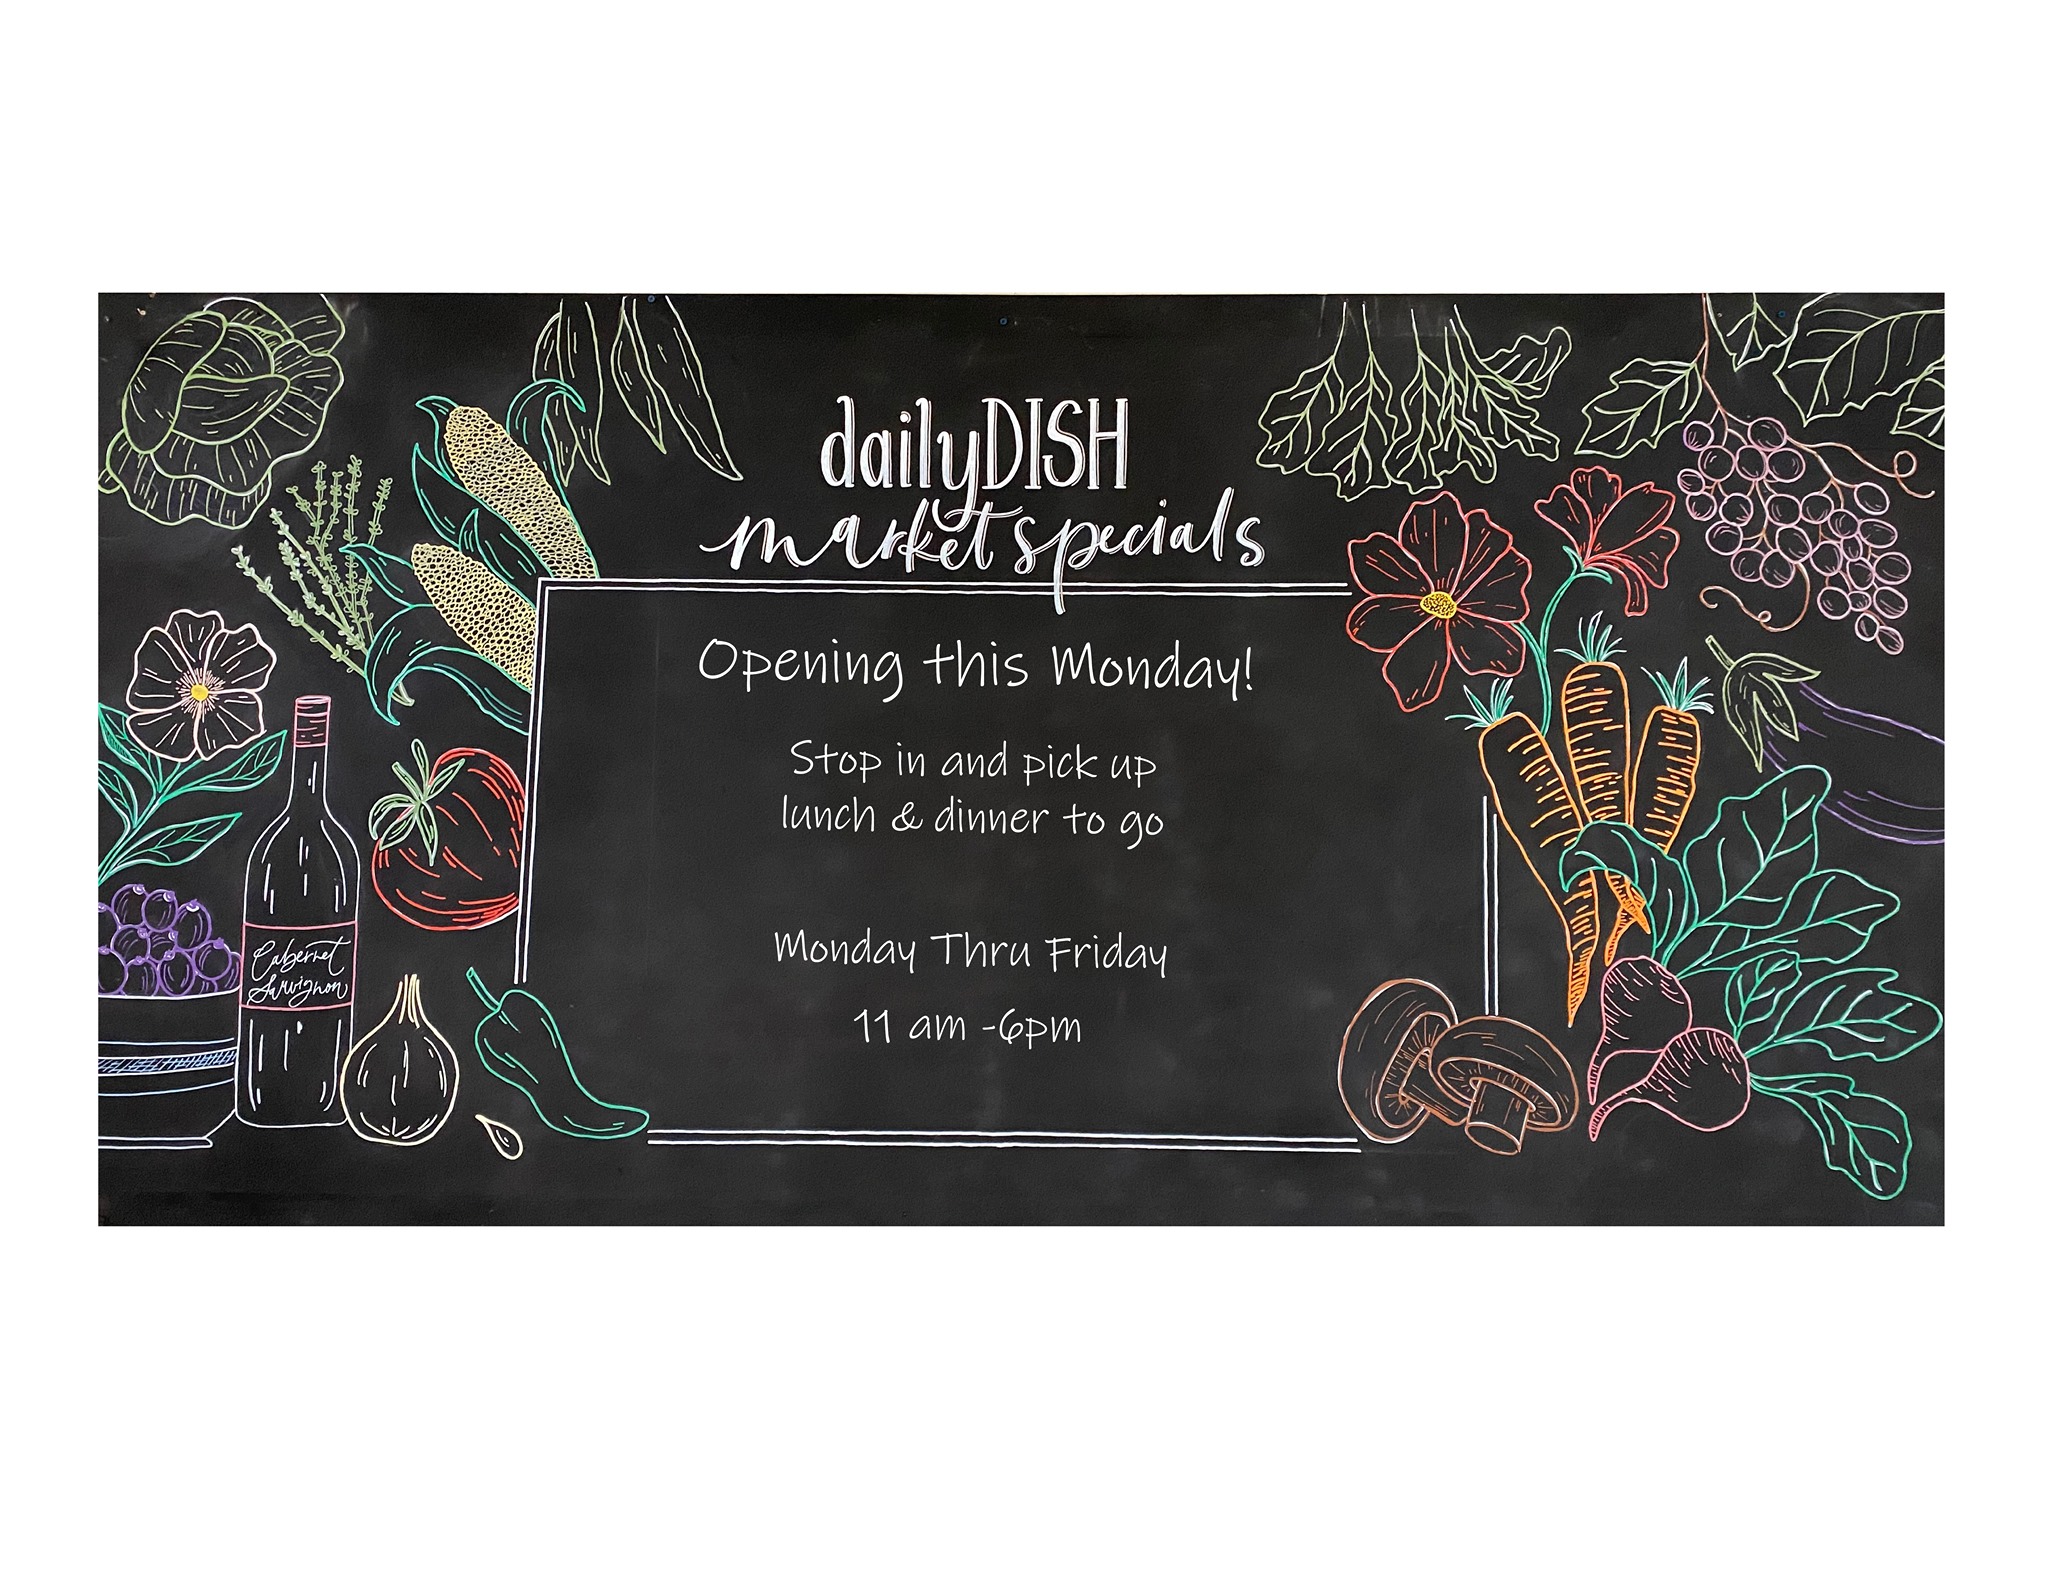 dailyDISH
market specials
Opening this Monday!
Stop in and pick up
lunch & dinner to go
Monday Thru Friday
11 am -6pm
Cabernet
Sauvignon